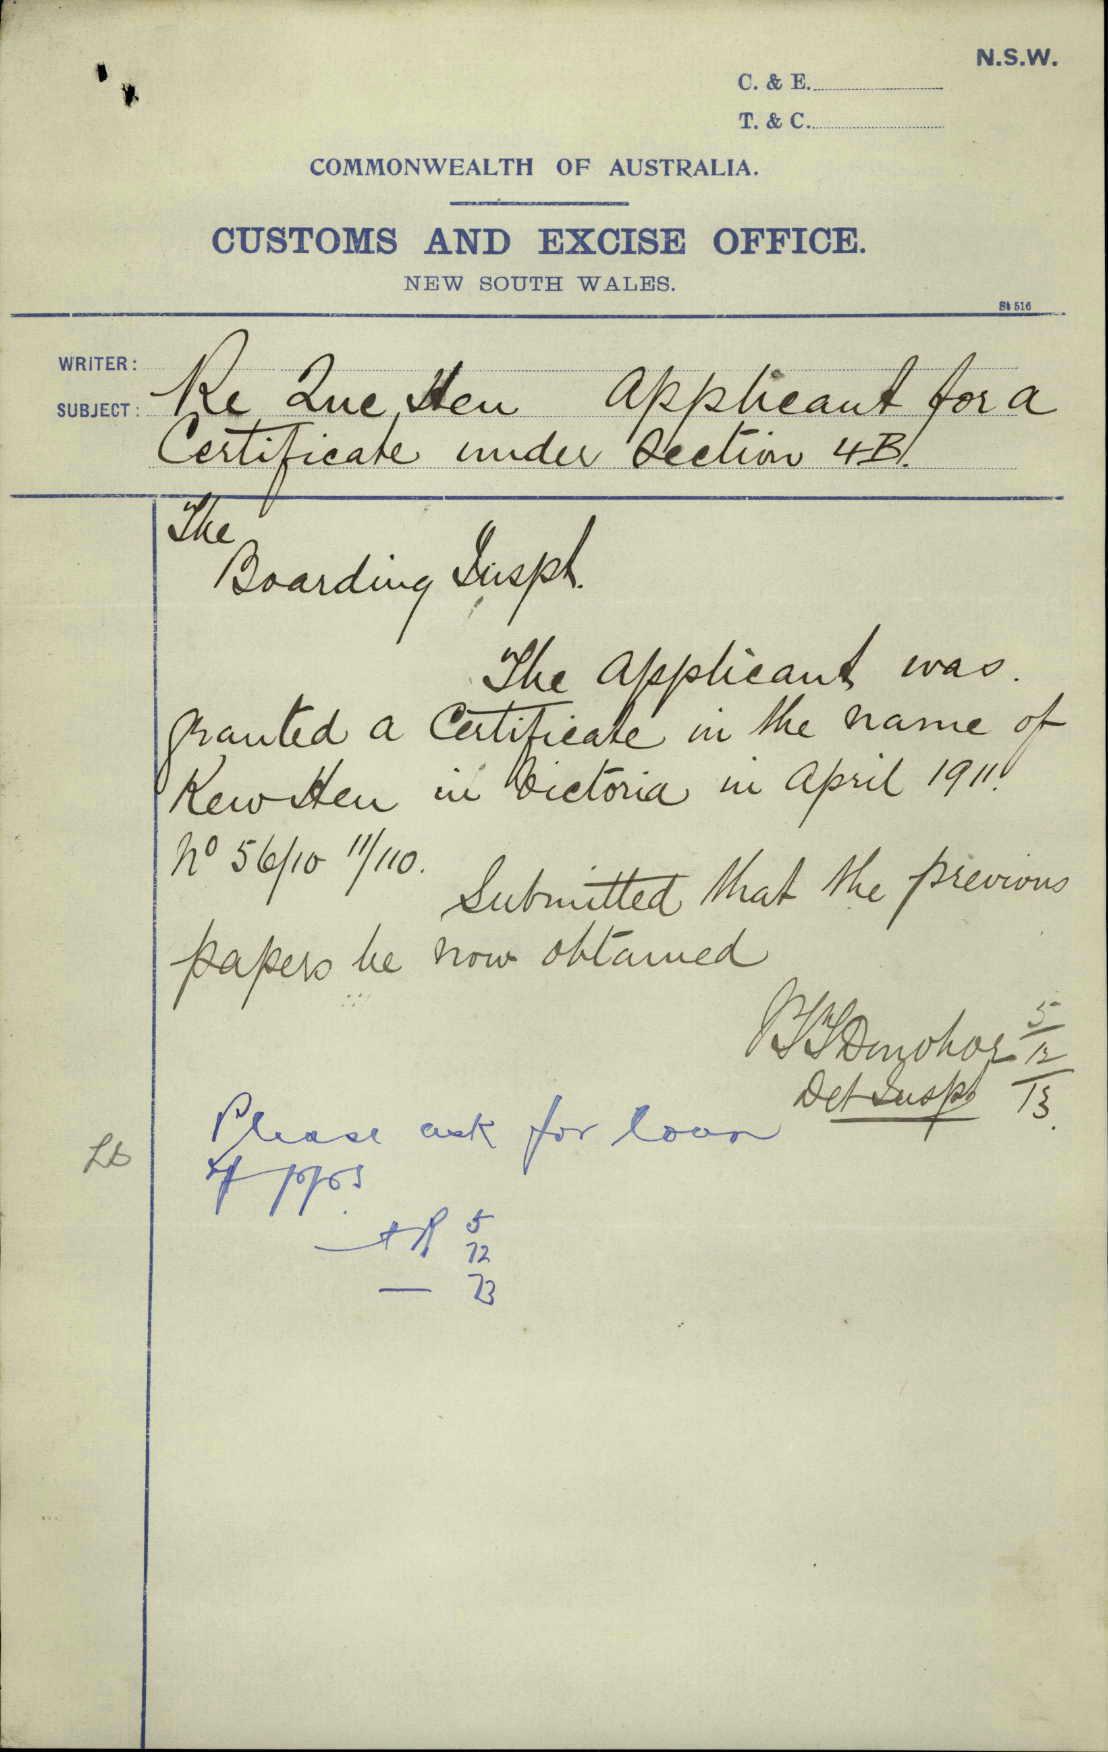 N.S.W.
C. & E.
T. & C.
COMMONWEALTH OF AUSTRALIA.
CUSTOMS AND EXCISE OFFICE.
NEW SOUTH WALES.
St 516
WRITER:
SUBJECT: Re Que Hen Applicant for a
Certificate under Section 4B.
The
Boarding Inspt.
The applicant was
granted a Certificate in the name of
Kew Hen in Victoria in April 1911.
No 56/10 11/110.
Submitted that the previous
papers be now obtained
Donohoe 5/12/13.
Det Inspr
Please ask for loan
of pprs
5
12
13